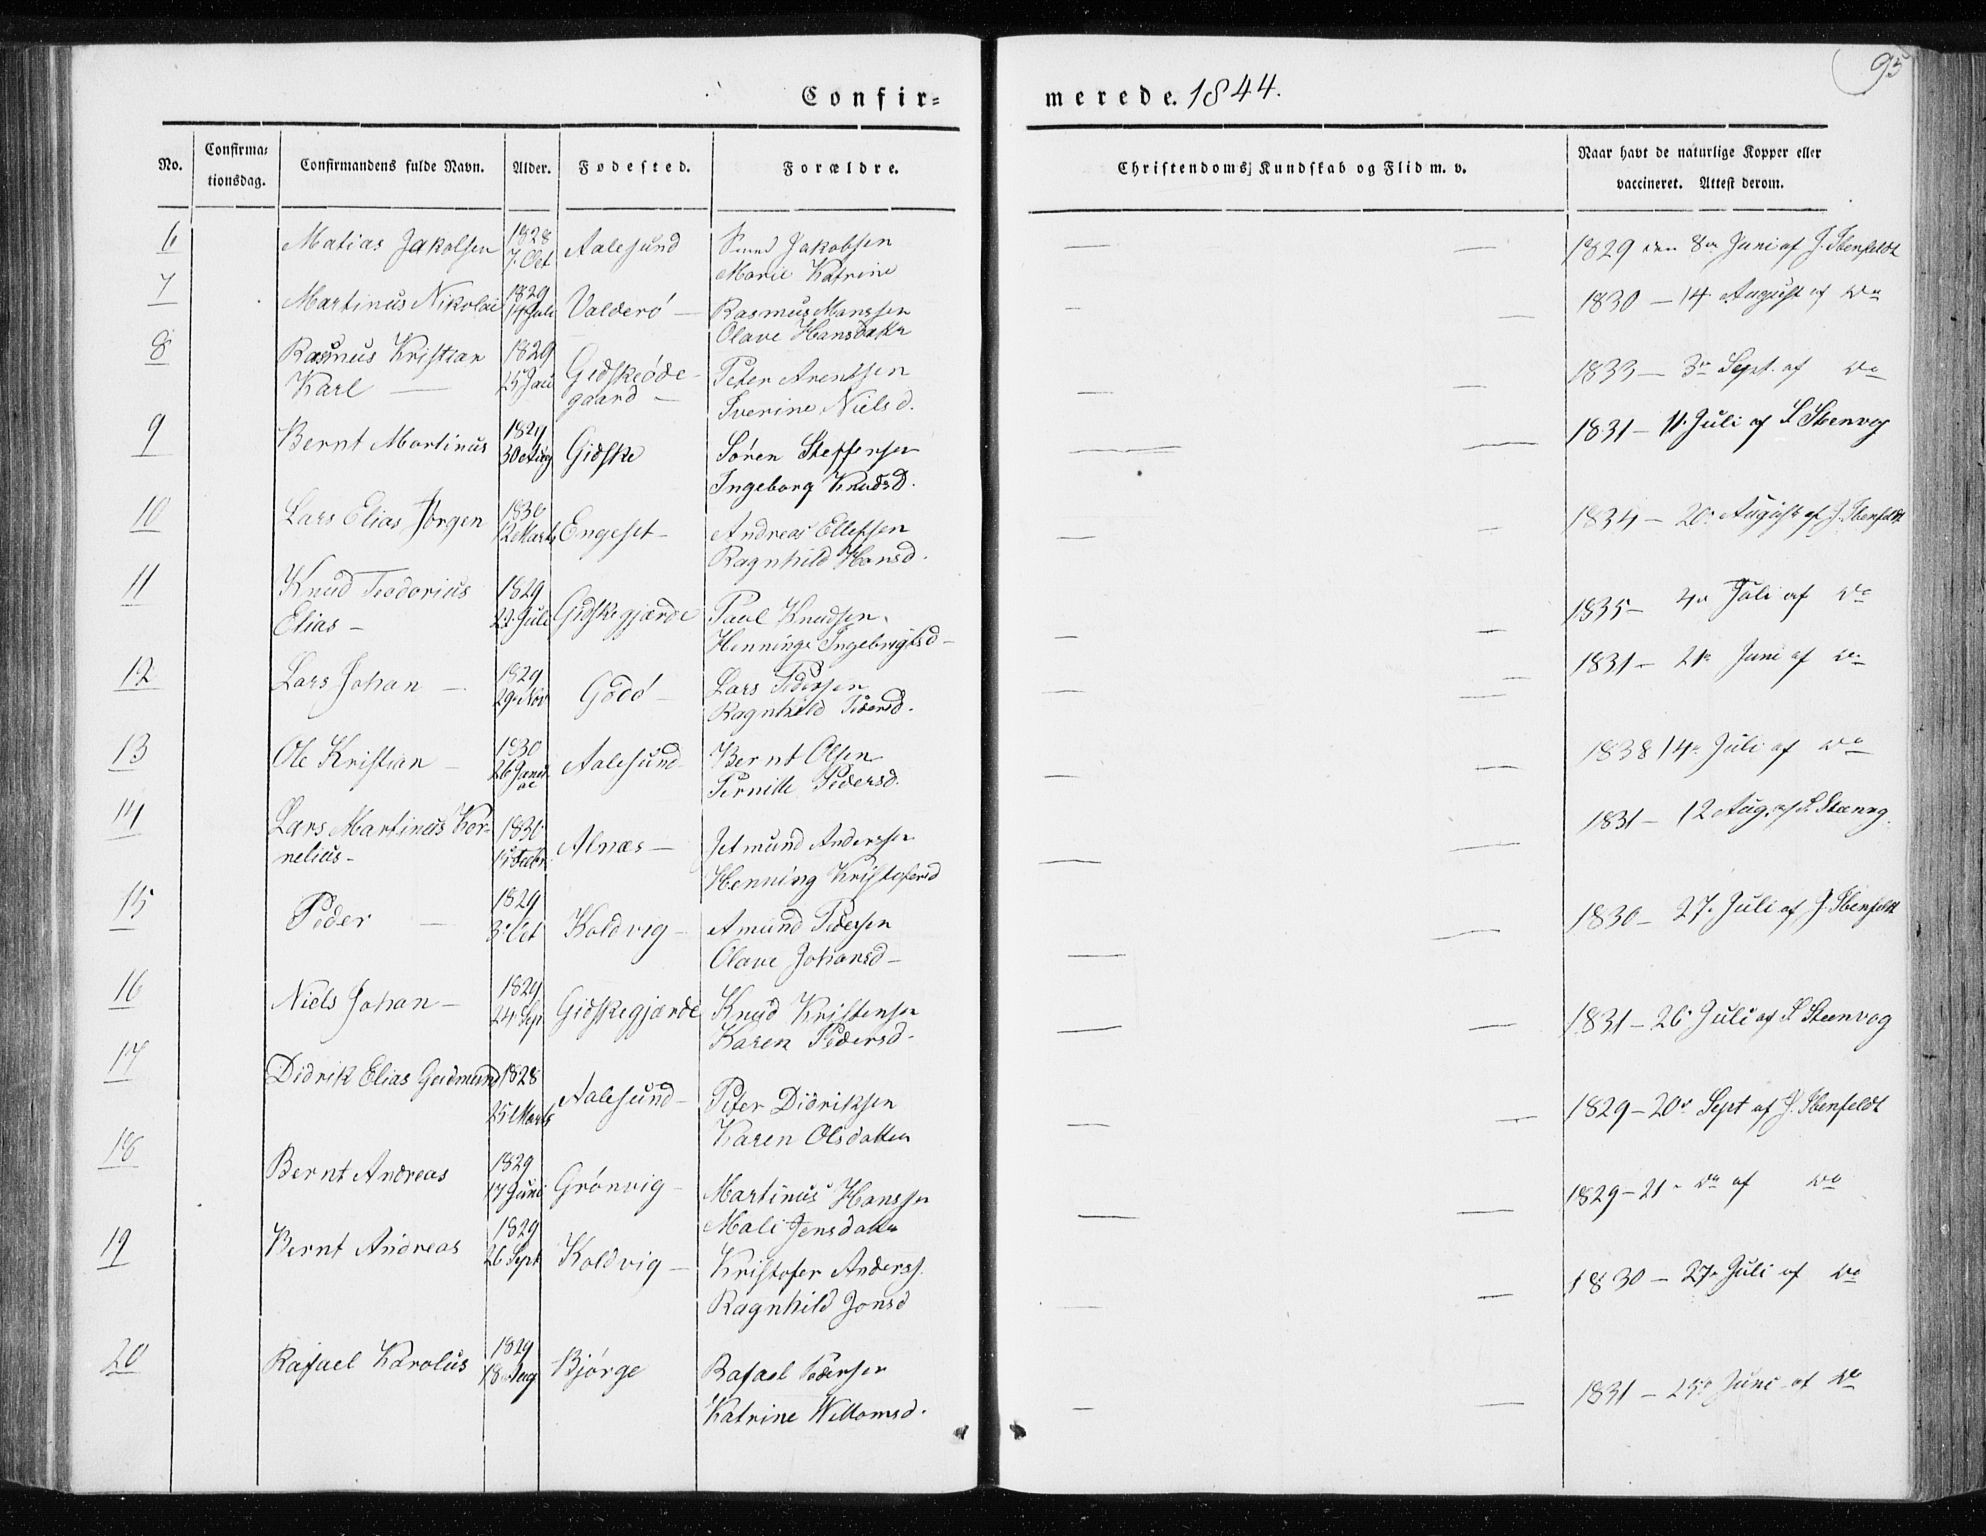 95
Confir=
merede. 1844.
No.
Confirma=
tionsdag.
Confirmandens fulde Navn.
Alder.
Fødested.
Forældre.
Christendoms Kundskab og Flid m. v.
Naar havt de naturlige Kopper eller
vaccineret. Attest derom.
6 Matias Jakobsen 1828 7. Oct Aalesund Jakobsen
Marie Katrine
1829 den 8de Juni af J. Ibenfeldt
7 Martinus Nikolai 1829 14 Juli Valderö — Rasmus Manssen
Olave Hansdatter
1830 — 14. August af do
8 Rasmus Kristian 1829 Gidskeöde- Peter Arentsen
Karl — 25 Jan gaard — Iverine Nielsd.
1833 — 3de Sept. af do
9 Bernt Martinus 1829 30 Aug Gidske Søren Steffensen
Ingeborg Knudsd.
1831 — 11. Juli af S Steenvog
10 Lars Elias Jørgen 1830 12 Marts Engeset — Andreas Ellefsen
Ragnhild Hansd.
1834 — 20. August af J. Ibenfeldt
11 Knud Teodorius 1829 Gidskegjærde Paul Knudsen
Elias — Juli Henninge Ingebrigtsd —
1835 — 4de Juli af do
12 Lars Johan — 1829 29. Nov Godö — Lars Pedersen
Ragnhild Pedersd.
1831 — 21de Juni af do
13 Ole Kristian — 1830 26 Aalesund Bernt Olsen
Pernille Pedersd.
1838 14de Juli af do
14 Lars Martinus Kor- Alnæs — Jetmund Anderssen
nelius — Febr. Henning Kristofersd
1831 — 12 Aug. af S Steenvg
15 Peder — 1829 3. Oct Koldvig — Amund Pedersen
Olave Johansd —
1830 — 27. Juli af J. Ibenfeldt
16 Niels Johan — 1829 24. Sep Gidskegjærde Knud Kristensen
Karen Pedersd.
1831 — 26. Juli af S Steenvog
17 Didrik Elias Gudmund 1828 25 Marts Aalesund — Peter Didriksen
Karen Olsdatter
1829 — 20de Sept af J. Ibenfeldt
18 Bernt Andreas 1829 17 Juni Grönvig — Martinus Hanssen
Mali Jensdatter
1829 — 21 — do af do
19 Bernt Andreas 1829 26 Sept Koldvig — Kristofer Anderss.
Ragnhild Jonsd
1830 — 27de Juli af do
20 Rafael Karolus 1829 18. Aug Bjørge Rafael Pedersen
Katrine Willomsd.
1831 — 25de Juni af do